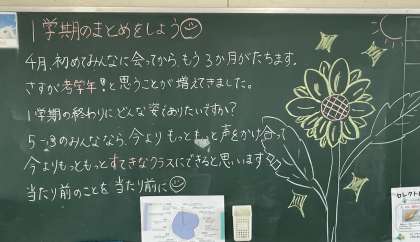 1学期のまとめをしよう☺
4月、初めてみんなに会ってから、もう3か月がたちます。
さすが高学年!!と思うことが増えてきました。
1学期の終わりにどんな姿でありたいですか?
5-3のみんななら、今よりもっともっと声をかけ合って
今よりもっともっとすてきなクラスにできると思います!!
当たり前のことを当たり前に☺
セレクト